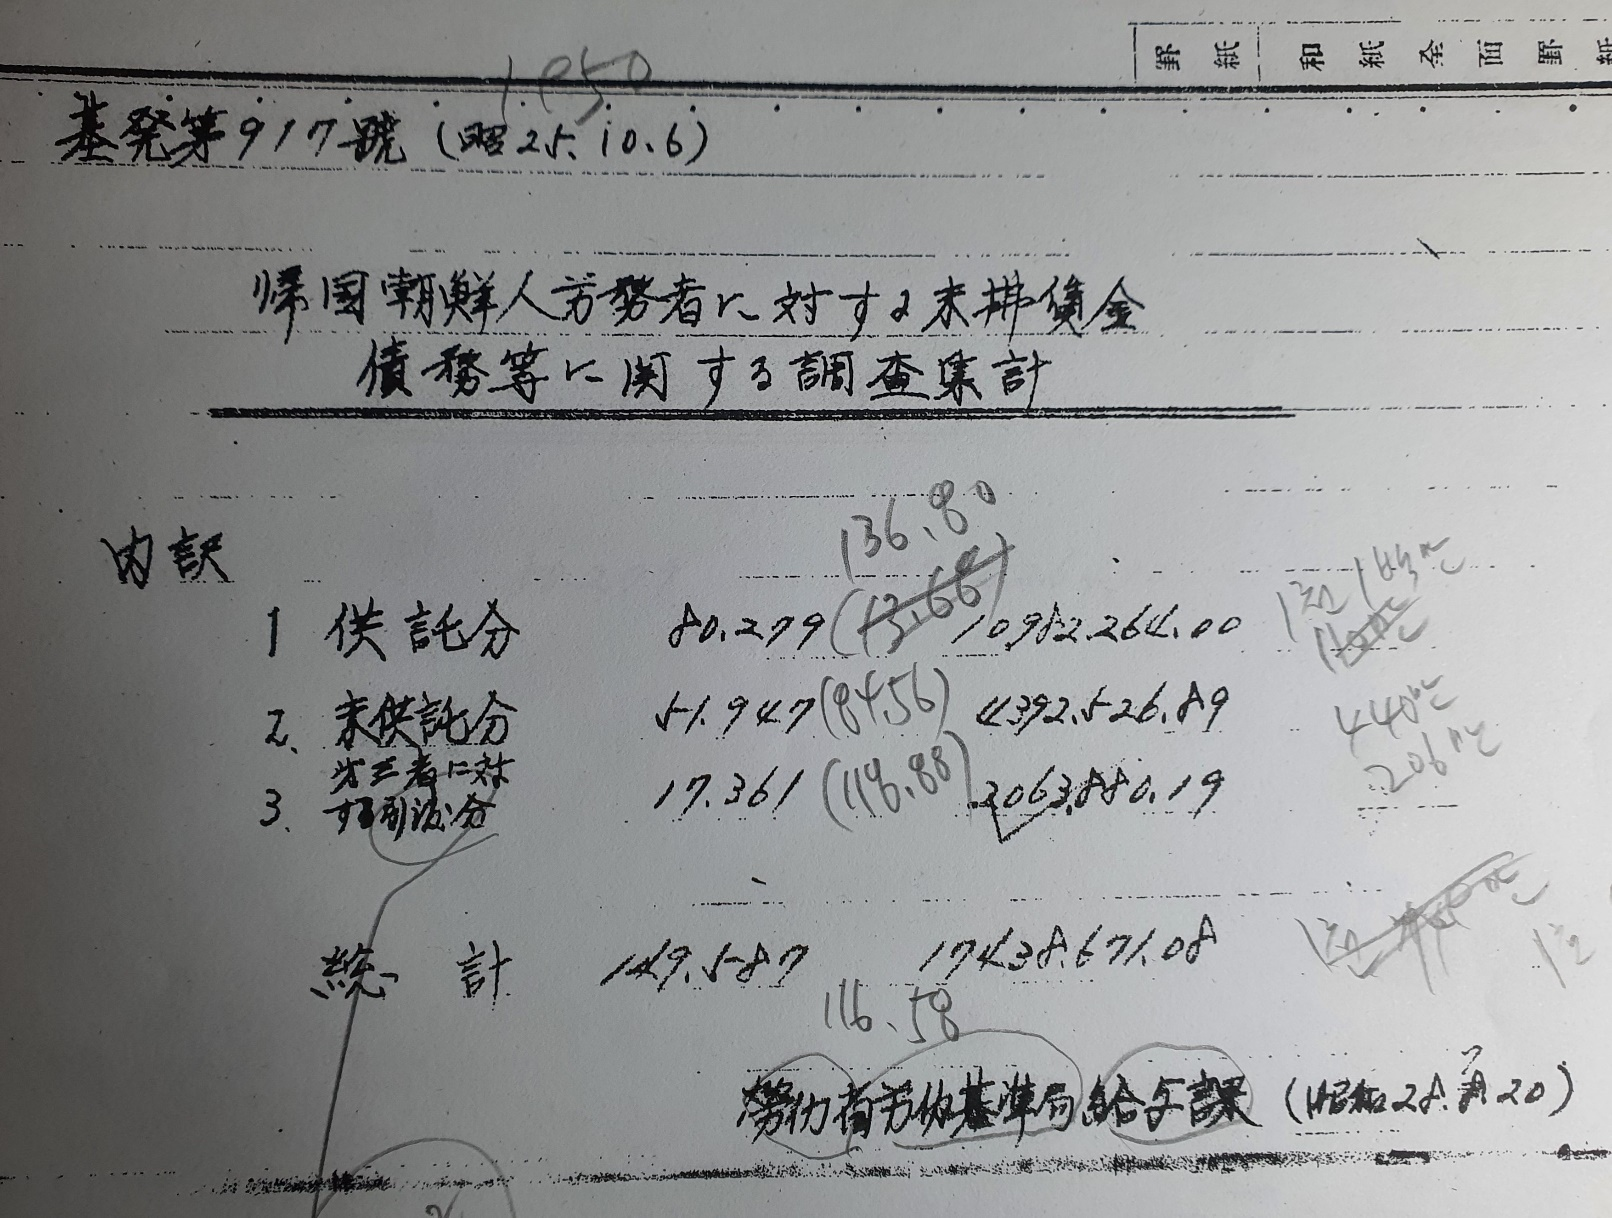 罫紙 和紙全面罫紙
1.950
基発第917號（昭25.10.6）
帰国朝鮮人労務者に対する未拂賃金
債務等に関する調査集計
内訳
136.80
1 供託分 80.279 (13.68) 10982.264.00 1천 1백만
2. 未供託分 51.947 (8456) 4392.526.89 440만
3. 第三者に対する引渡分 17.361 (118.88) 2063.880.19 206만
総計 149.587 17438.671.08
116.58
勞働省労働基準局給与課（昭和28.8.20）